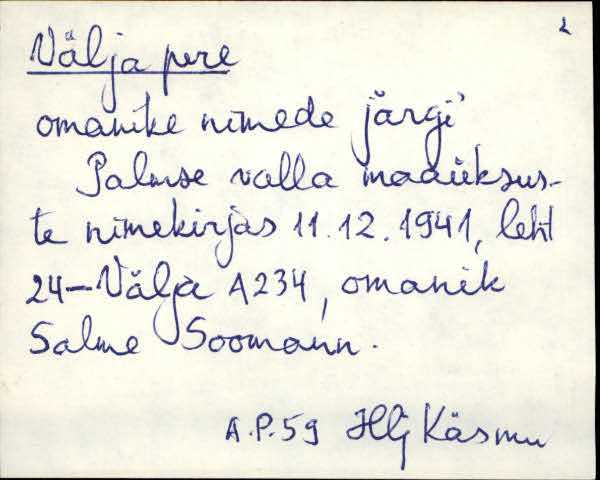 2
Välja pere
omanike nimede järgi
Palmse valla maaüksus-
te nimekirjas 11.12.1941, leht
24-Välja A234, omanik
Salme Soomann.
A.P.59 Hlj Käsmu